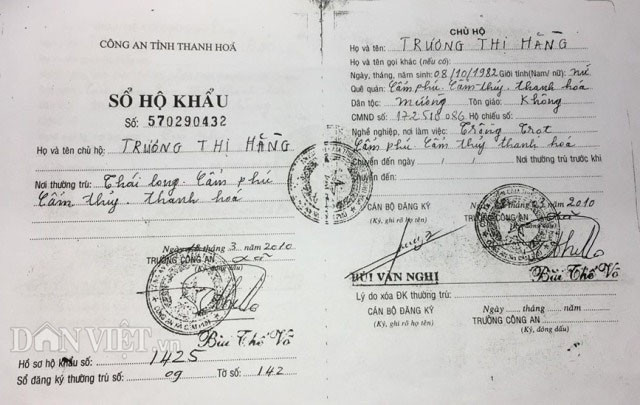 CÔNG AN TỈNH THANH HOÁ
SỔ HỘ KHẨU
Số: 570290432
Họ và tên chủ hộ: TRƯƠNG THỊ HẰNG
Nơi thường trú: Thái long. Cẩm phú
Cẩm thủy. thanh hoá
Ngày tháng 3 năm 2010
TRƯỞNG CÔNG AN xã
Bùi Thế Vỏ
Hồ sơ hộ khẩu số: 1425
Sổ đăng ký thường trú số: 09 Tờ số: 142
DÂNVIỆT.vn
CHỦ HỘ
Họ và tên: TRƯƠNG THỊ HẰNG
Họ và tên gọi khác (nếu có):
Ngày, tháng, năm sinh: 08/10/1982 Giới tính (Nam/ nữ): nữ
Quê quán: Cẩm phú, Cẩm Thủy. thanh hóa
Dân tộc: mường Tôn giáo: Không
CMND số: 172510086 Hộ chiếu số:
Nghề nghiệp, nơi làm việc: Trồng Trọt
Cẩm phú Cẩm thuỷ thanh hoá
Chuyển đến ngày / / Nơi thường trú trước khi
chuyển đến
tháng 3 năm 2010
CÁN BỘ ĐĂNG KÝ
(Ký, ghi rõ họ tên)
TRƯỞNG CÔNG AN xã
BÙI VĂN NGHỊ
Bùi Thế Vỏ
Lý do xóa ĐK thường trú:
Ngày tháng năm
CÁN BỘ ĐĂNG KÝ
(Ký, ghi rõ họ tên)
TRƯỞNG CÔNG AN
(Ký, đóng dấu)